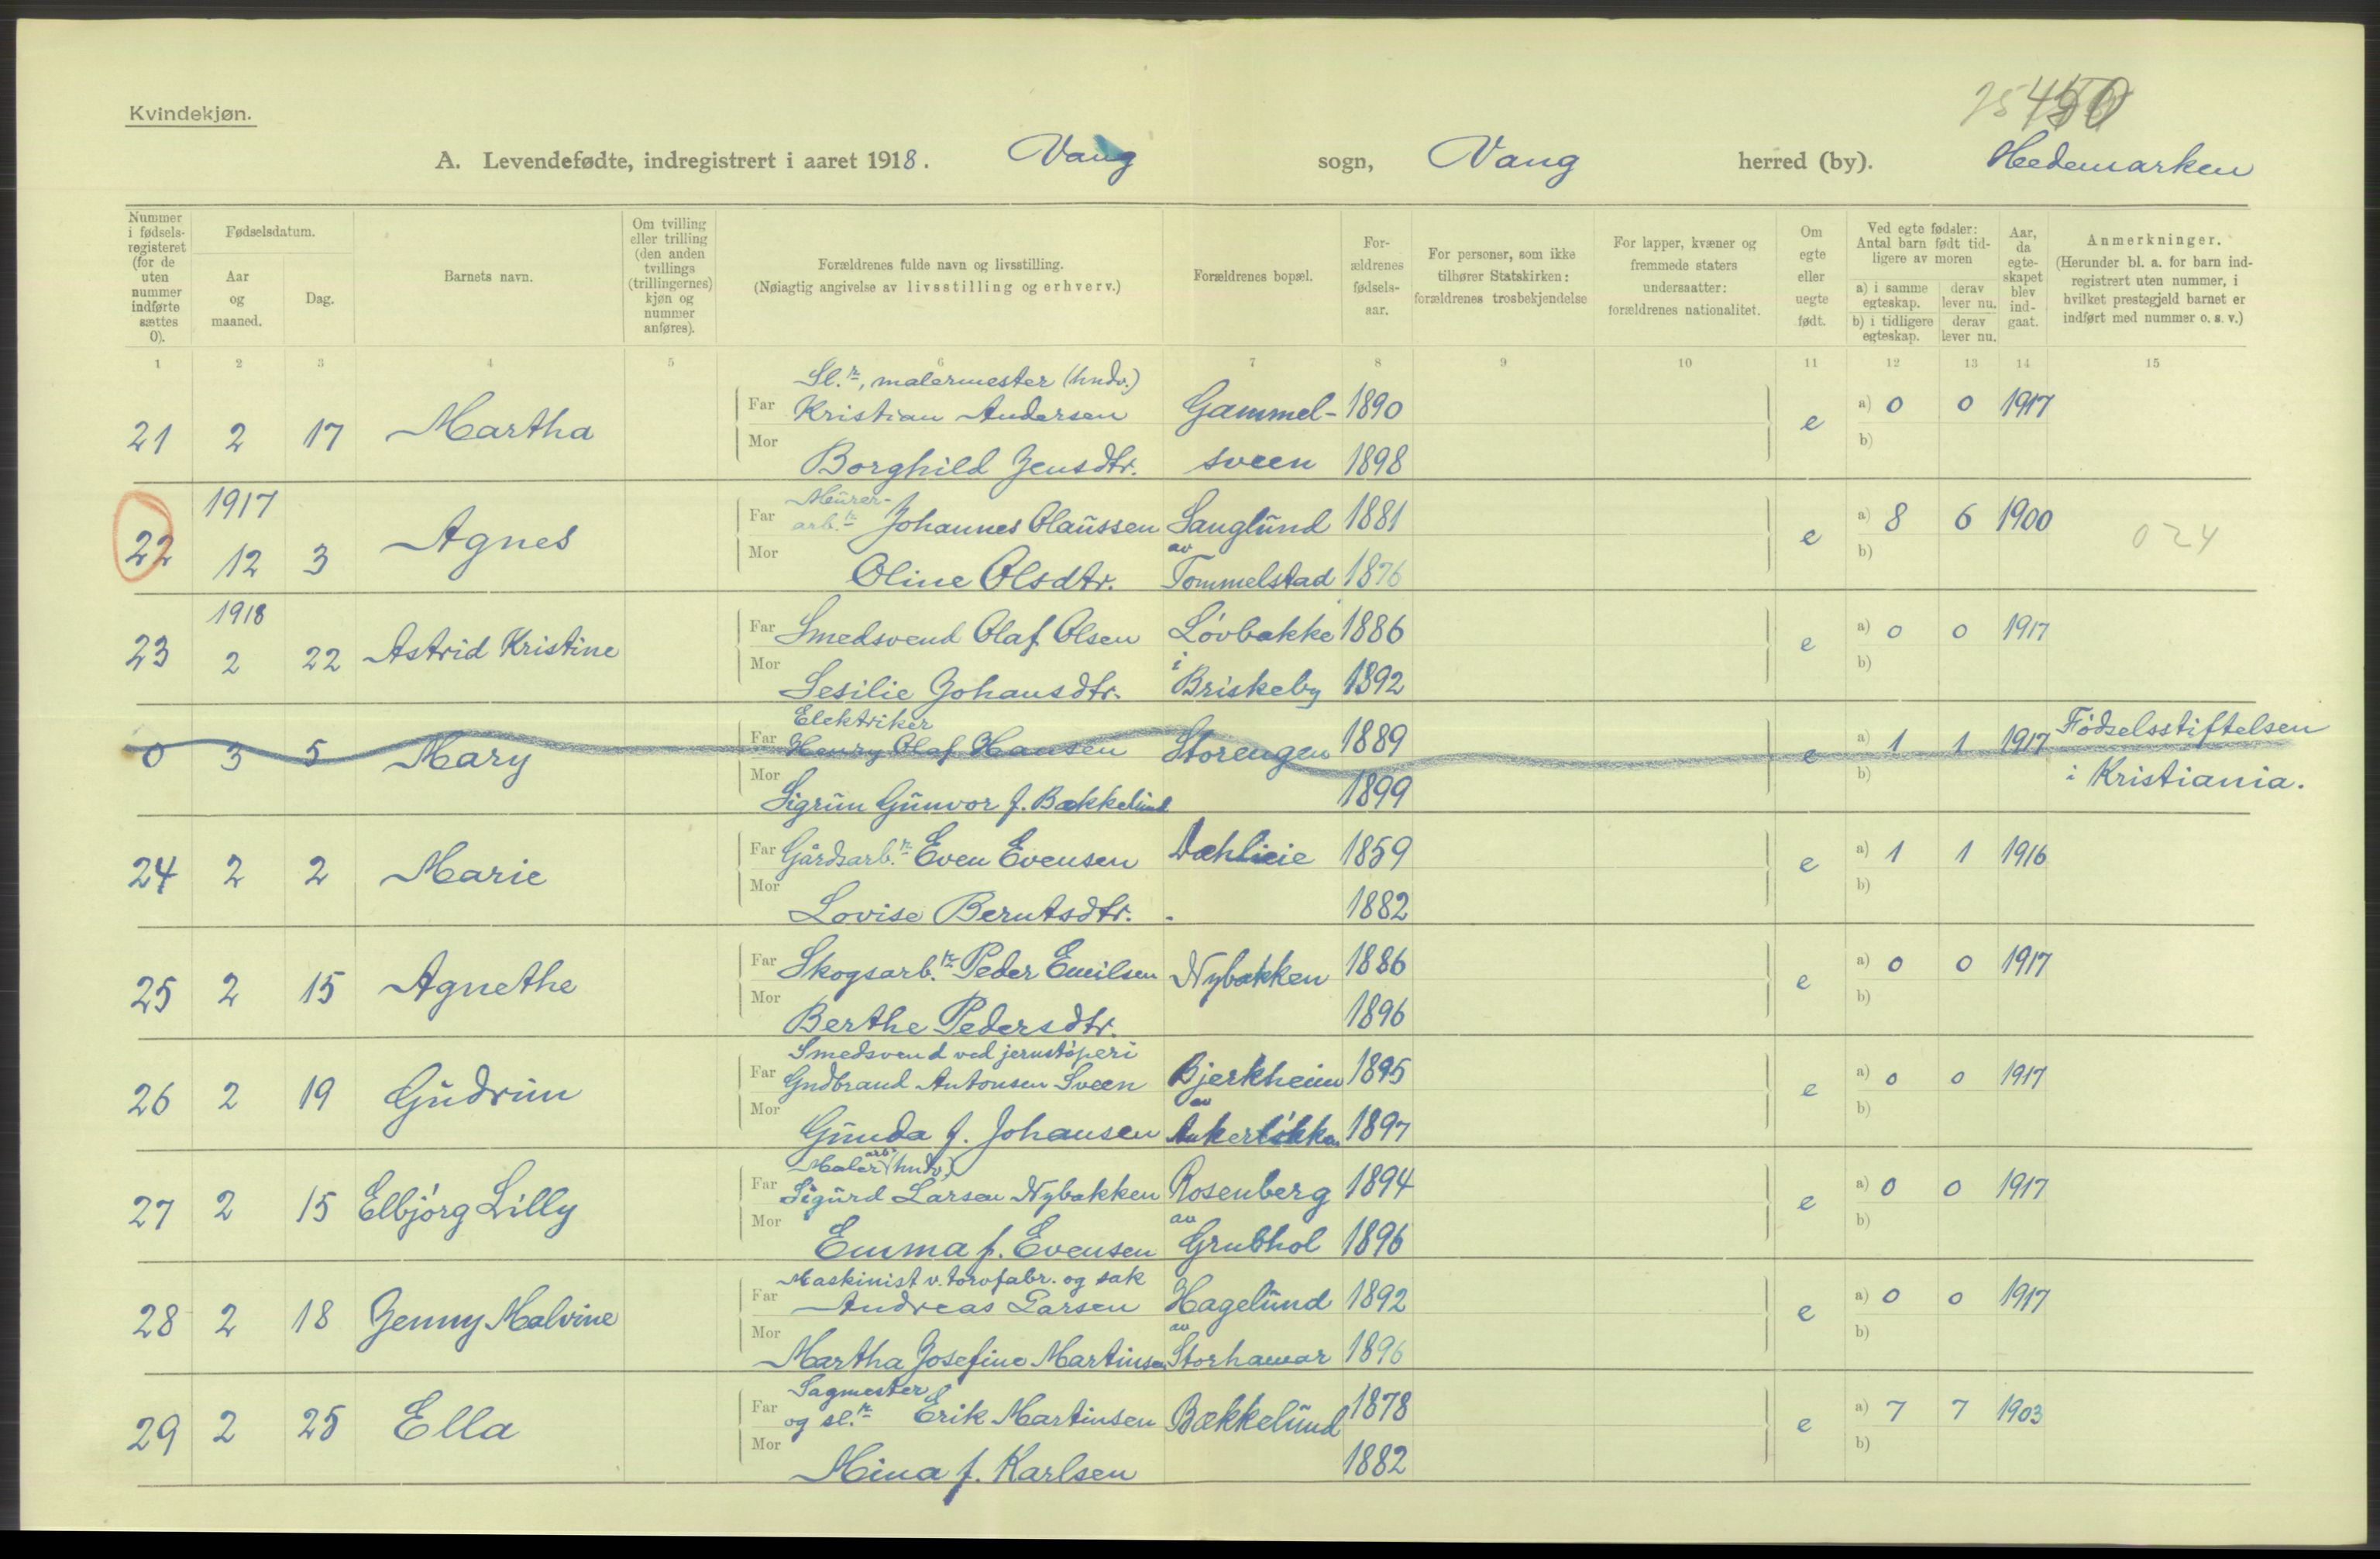 Kvindekjøn.
450
A. Levendefødte, indregistrert i aaret 1918. Vang sogn, Vang herred (by). Hedemarken
Nummer i fødsels-registeret (for de uten nummer indførte sættes 0).
Fødselsdatum.
Aar og maaned.
Dag.
Barnets navn.
Om tvilling eller trilling (den anden tvillings (trillingernes) kjøn og nummer anføres).
Forældrenes fulde navn og livsstilling.
(Nøiagtig angivelse av livsstilling og erhverv.)
Forældrenes bopæl.
For-ældrenes fødsels-aar.
For personer, som ikke tilhører Statskirken: forældrenes trosbekjendelse
For lapper, kvæner og fremmede staters undersaatter: forældrenes nationalitet.
Om egte eller uegte født.
Ved egte fødsler: Antal barn født tid-ligere av moren
a) i samme egteskap.
derav lever nu.
b) i tidligere egteskap.
derav lever nu.
Aar, da egte-skapet blev ind-gaat.
Anmerkninger.
(Herunder bl. a. for barn ind-registrert uten nummer, i hvilket prestegjeld barnet er indført med nummer o. s. v.)
1 2 3 4 5 6 7 8 9 10 11 12 13 14 15
Sl.r, malermester (hndv.)
21 2 17 Martha Far Kristian Andersen Gammel- 1890 e a) 0 0 1917
Mor Borghild Jensdtr. sveen 1898 b)
1917 Murer-
22 12 3 Agnes Far arb.r Johannes Olaussen Sanglund 1881 e a) 8 6 1900 024
Mor Oline Olsdtr. av Tommelstad 1876 b)
1918
23 2 22 Astrid Kristine Far Smedsvend Olaf Olsen Løvbakke 1886 e a) 0 0 1917
Mor Sesilie Johansdtr. i Briskeby 1892 b)
Elektriker
0 3 5 Mary Far Henry Olaf Hansen Storengen 1889 e a) 1 1 1917 Fødselsstiftelsen
Mor Sigrun Gunvor f. Bækkelund 1899 b) i Kristiania.
24 2 2 Marie Far Gårdsarb.r Even Evensen Dæhlieie 1859 e a) 1 1 1916
Mor Lovise Berntsdtr. 1882 b)
25 2 15 Agnethe Far Skogsarb.r Peder Emilsen Nybakken 1886 e a) 0 0 1917
Mor Berthe Pedersdtr. 1896 b)
Smedsvend ved jernstøperi
26 2 19 Gudrun Far Gudbrand Antonsen Sveen Bjerkheim 1895 e a) 0 0 1917
Mor Gunda f. Johansen av Ankerløkka 1897 b)
Maler arb. (hndv.)
27 2 15 Elbjørg Lilly Far Sigurd Larsen Nybakken Rosenberg 1894 e a) 0 0 1917
Mor Emma f. Evensen av Grubhol 1896 b)
Maskinist v. torvfabr. og sak
28 2 18 Jenny Malvine Far Andreas Larsen Hagelund 1892 e a) 0 0 1917
Mor Martha Josefine Martinsen av Storhamar 1896 b)
Sagmester
29 2 25 Ella Far og sl.r Erik Martinsen Bækkelund 1878 e a) 7 7 1903
Mor Mina f. Karlsen 1882 b)